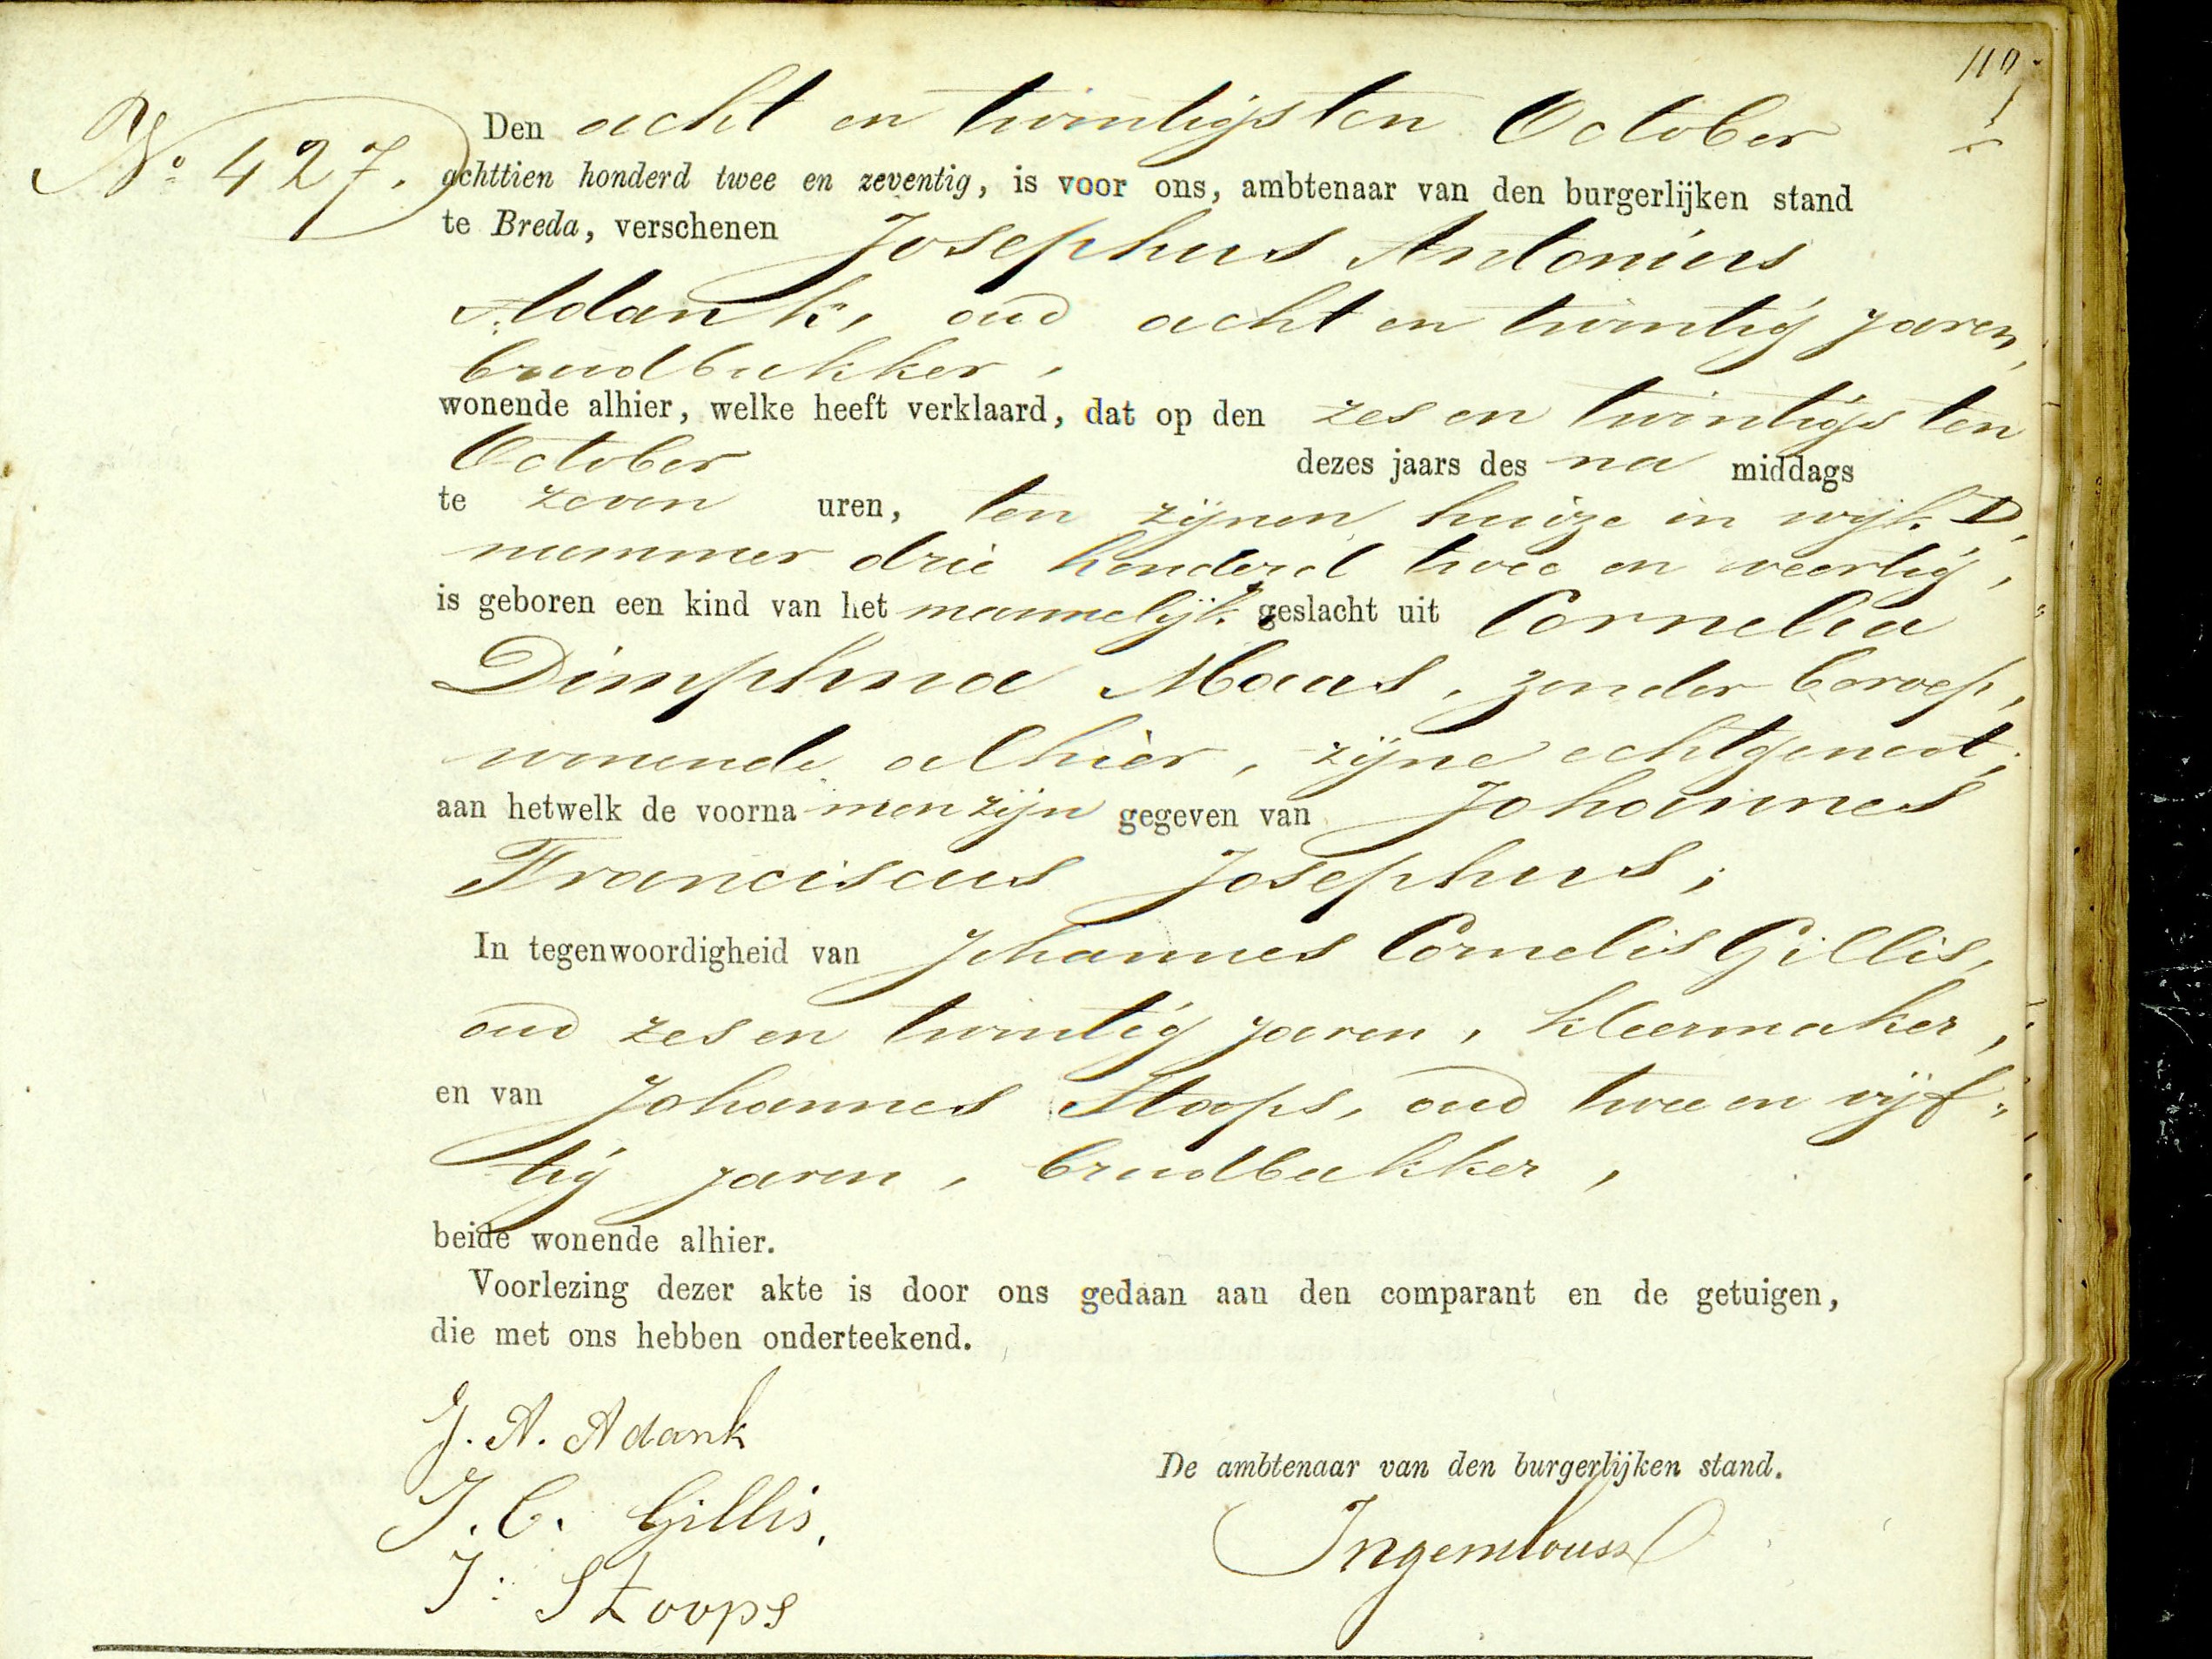 110.
No. 427.
Den acht en twintigsten October
achttien honderd twee en zeventig, is voor ons, ambtenaar van den burgerlijken stand
te Breda, verschenen Josephus Antonius
Adank, oud acht en twintig jaren,
broodbakker,
wonende alhier, welke heeft verklaard, dat op den zes en twintigsten
October dezes jaars des na middags
te zeven uren, ten zijnen huize in wijk D,
nummer drie honderd twee en veertig,
is geboren een kind van het mannelijk geslacht uit Cornelia
Dimphna Maas, zonder beroep,
wonende alhier, zijne echtgenoot;
aan hetwelk de voorna men zijn gegeven van Johannes
Franciscus Josephus;
In tegenwoordigheid van Johannes Cornelis Gillis,
oud zes en twintig jaren, kleermaker,
en van Johannes Stoops, oud twee en vijf„
tig jaren, broodbakker,
beide wonende alhier.
Voorlezing dezer akte is door ons gedaan aan den comparant en de getuigen,
die met ons hebben onderteekend.
J. A. Adank
De ambtenaar van den burgerlijken stand.
J. C. Gillis.
Ingenhousz
J: Stoops